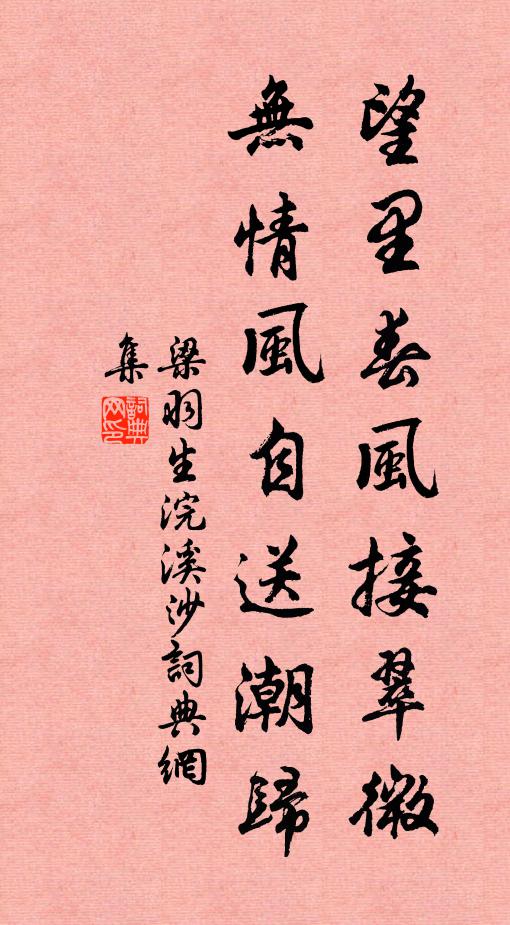 望里春風接翠微
無情風自送潮歸
梁羽生浣溪沙詞典網
集
詞典網印